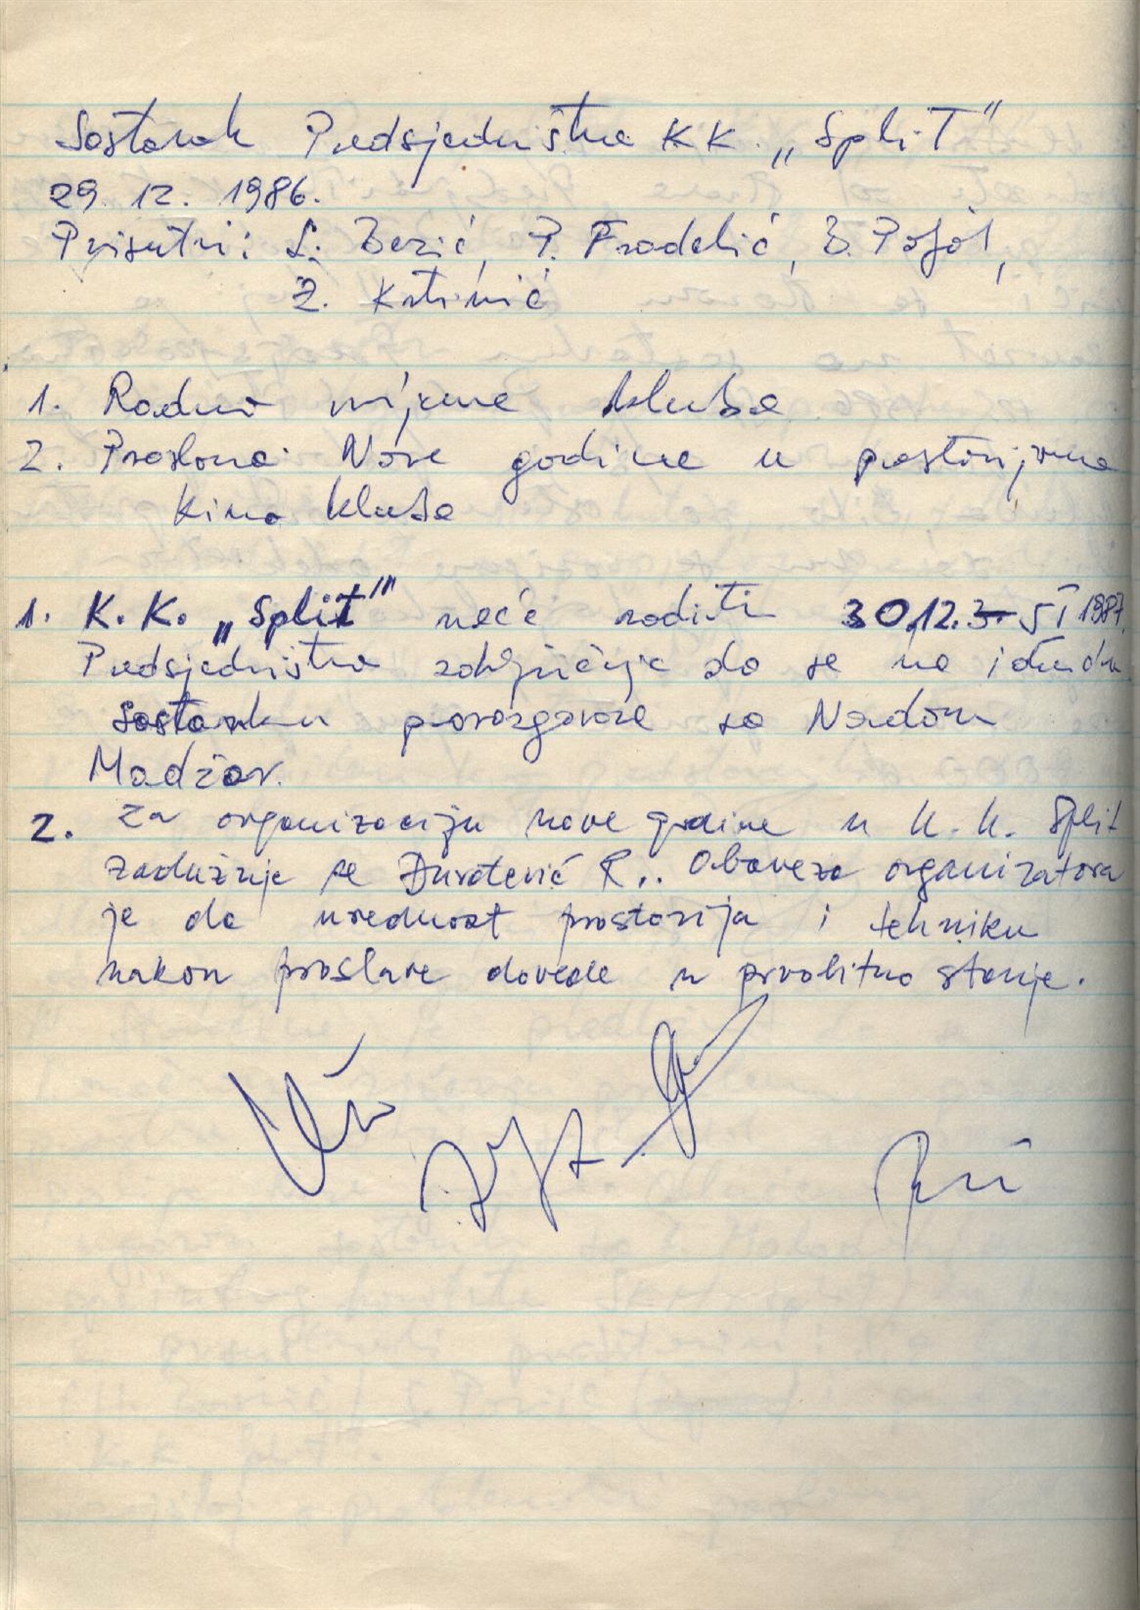 Sastanak Predsjedništva KK. „Split"
29. 12. 1986.
Prisutni: L. Bezić, P. Fradelić, B. Poljak,
Z. Krtinić
1. Radno vrijeme kluba
2. Proslava Nove godine u prostorijama
Kino kluba
1. K.K. „Split" neće raditi 30.12. 5 I 1987.
Predsjedništvo zaključuje da se na idućem
sastanku porazgovara sa Nadom
Madžar.
2. Za organizaciju nove godine u K.K. Split
zadužuje se Đurđević R.. Obaveza organizatora
je da urednost prostorija i tehniku
nakon proslave dovede u prvobitno stanje.